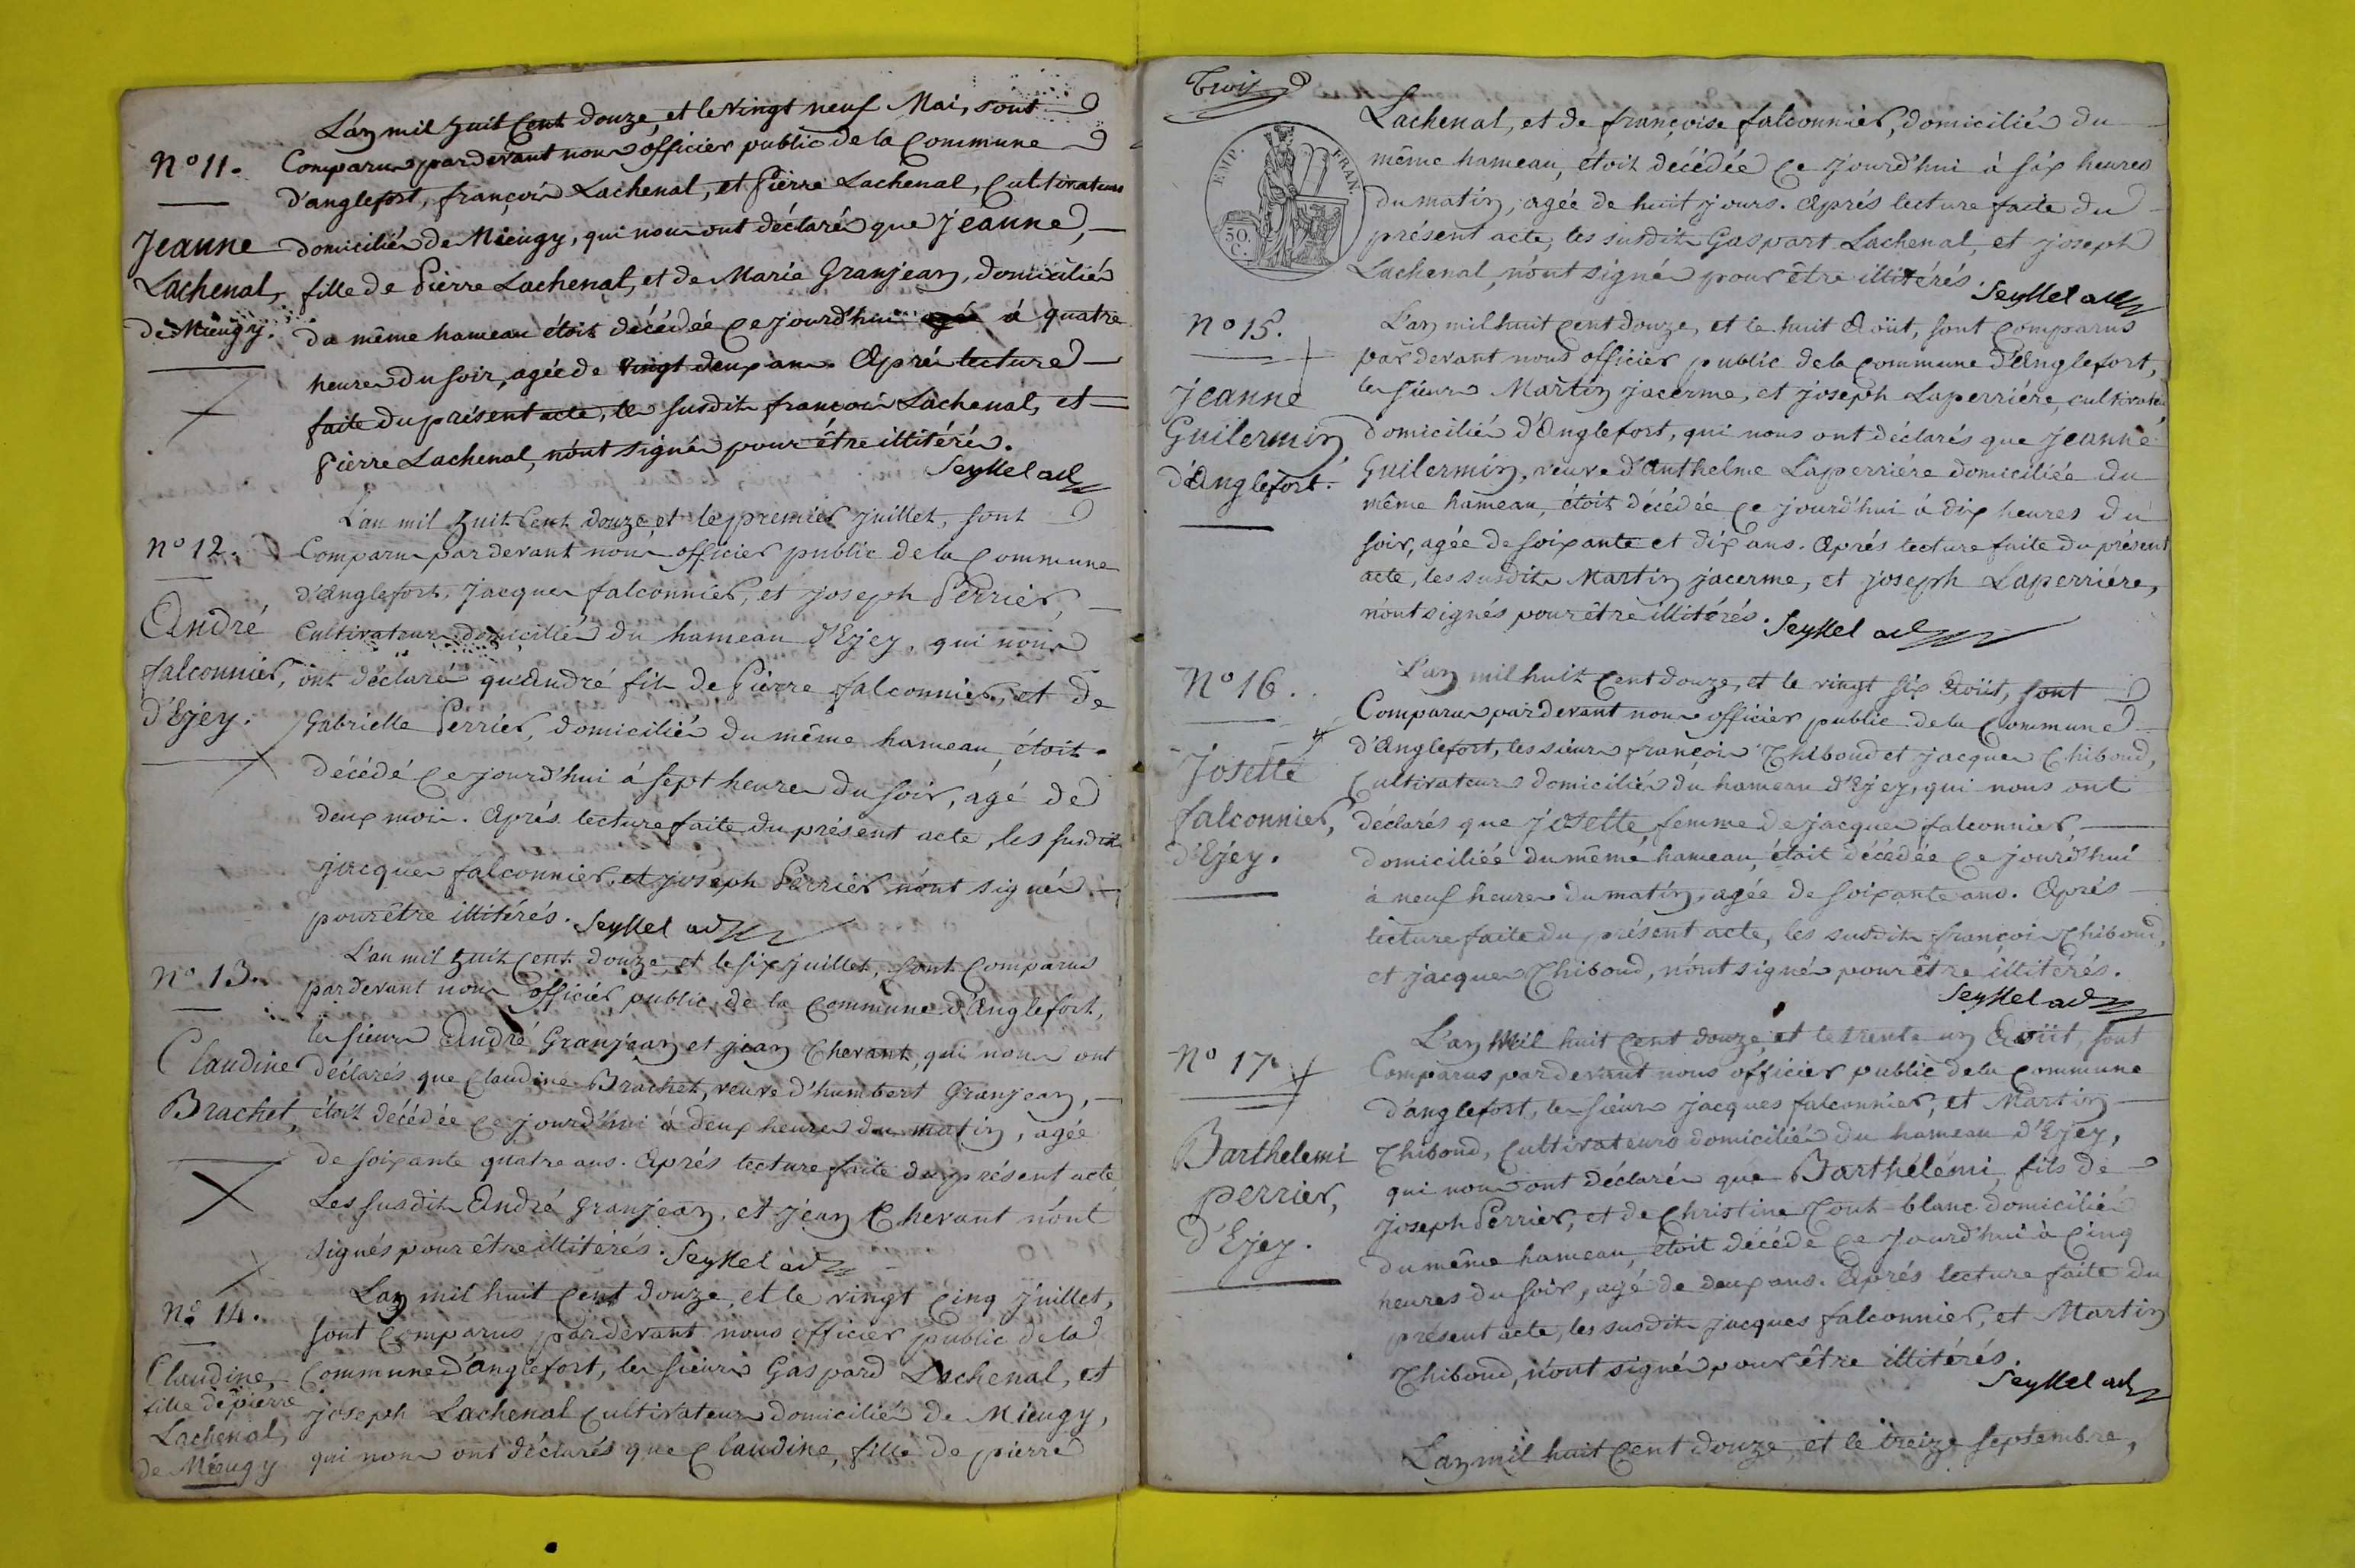 L'an mil huit Cent douze, et le vingt neuf Mai, sont
N° 11.
Comparus pardevant nous officier public de la Commune
d'anglefort, françois Lachenal, et Pierre Lachenal, Cultivateurs
Jeanne
domiciliés de Mieugy, qui nous ont déclarés que Jeanne,
Lachenal,
fille de Pierre Lachenal, et de Marie Granjean, domiciliés
de Mieugy.
du même hameau étoit décédée ce jourd'hui à quatre
heures du soir, agée de vingt deux ans. Aprés lecture
faite du présent acte, les susdits françois Lachenal, et
Pierre Lachenal, n'ont signés pour être illitérés.
Seyssel adj
L'an mil huit Cent douze, et le premier juillet, sont
N° 12.
Comparus pardevant nous officier public de la Commune
d'Anglefort, Jacques falconnier, et Joseph Perrier,
André
Cultivateurs domiciliés du hameau d'Ejey, qui nous
falconnier,
ont déclaré qu'André fils de Pierre falconnier, et de
d'Ejey.
Gabrielle Perrier, domiciliés du même hameau, étoit
décédé ce jourd'hui à sept heures du soir, agé de
deux mois. Aprés lecture faite du présent acte, les susdits
jacques falconnier, et joseph Perrier n'ont signés
pour être illitérés. Seyssel adj
L'an mil huit Cent douze, et le six juillet, sont Comparus
N° 13.
pardevant nous officier public de la Commune d'Anglefort,
les sieurs André Granjean et jean Chevant, qui nous ont
Claudine
déclarés que Claudine Brachet, veuve d'humbert Granjean,
Brachet,
étoit décédée ce jourd'hui à deux heures du matin, agée
de soixante quatre ans. Aprés lecture faite du présent acte
Les susdits André Granjean, et jean Chevant n'ont
signés pour être illitérés. Seyssel adj
L'an mil huit Cent douze, et le vingt Cinq juillet,
N° 14.
sont Comparus pardevant nous officier public de la
Claudine,
Commune d'anglefort, les sieurs Gaspard Lachenal, et
fille de pierre
joseph Lachenal Cultivateurs domiciliés de Mieugy,
Lachenal,
qui nous ont déclarés que Claudine, fille de pierre
de Mieugy
Trois
Lachenal, et de françoise falconnier, domiciliés du
même hameau, étoit décédée ce jourd'hui à six heures
EMP. FRAN.
du matin, agée de huit jours. Aprés lecture faite du
50. C.
présent acte, les susdits Gaspart Lachenal, et joseph
Lachenal, n'ont signés pour être illitérés. Seyssel adj
N° 15.
L'an mil huit Cent douze, et le huit Août, sont Comparus
pardevant nous officier public de la Commune d'Anglefort,
Jeanne
les sieurs Martin jacerme, et joseph Laperriére, cultivateurs
Guilermin,
domiciliés d'Anglefort, qui nous ont déclarés que Jeanne
d'Anglefort.
Guilermin, veuve d'Anthelme Laperriére domiciliée du
même hameau, étoit décédée ce jourd'hui à dix heures du
soir, agée de soixante et dix ans. Aprés lecture faite du présent
acte, les susdits Martin jacerme, et joseph Laperriére,
n'ont signés pour être illitérés. Seyssel adj
N° 16.
L'an mil huit Cent douze, et le vingt six Août, sont
Comparus pardevant nous officier public de la Commune
d'Anglefort, les sieurs françois Thiboud et jacques Thiboud,
Josette
Cultivateurs domiciliés du hameau d'Ejey, qui nous ont
falconnier,
déclarés que josette femme de jacques falconnier,
d'Ejey.
domiciliée du même hameau, étoit décédée ce jourd'hui
à neuf heures du matin, agée de soixante ans. Aprés
lecture faite du présent acte, les susdits françois Thiboud,
et jacques Thiboud, n'ont signés pour être illitérés.
Seyssel adj
L'an Mil huit Cent douze, et le trente un Août, sont
N° 17.
Comparus pardevant nous officier public de la Commune
d'anglefort, les sieurs jacques falconnier, et Martin
Barthelemi
Thiboud, Cultivateurs domiciliés du hameau d'Ejey,
perrier,
qui nous ont déclarés que Barthélémi, fils de
d'Ejey.
joseph Perrier, et de Christine Tout-blanc domiciliés
du même hameau, étoit décédé ce jourd'hui à Cinq
heures du soir, agé de deux ans. Aprés lecture faite du
présent acte, les susdits jacques falconnier, et Martin
Thiboud, n'ont signés pour être illitérés.
Seyssel adj
L'an mil huit Cent douze, et le treize septembre,